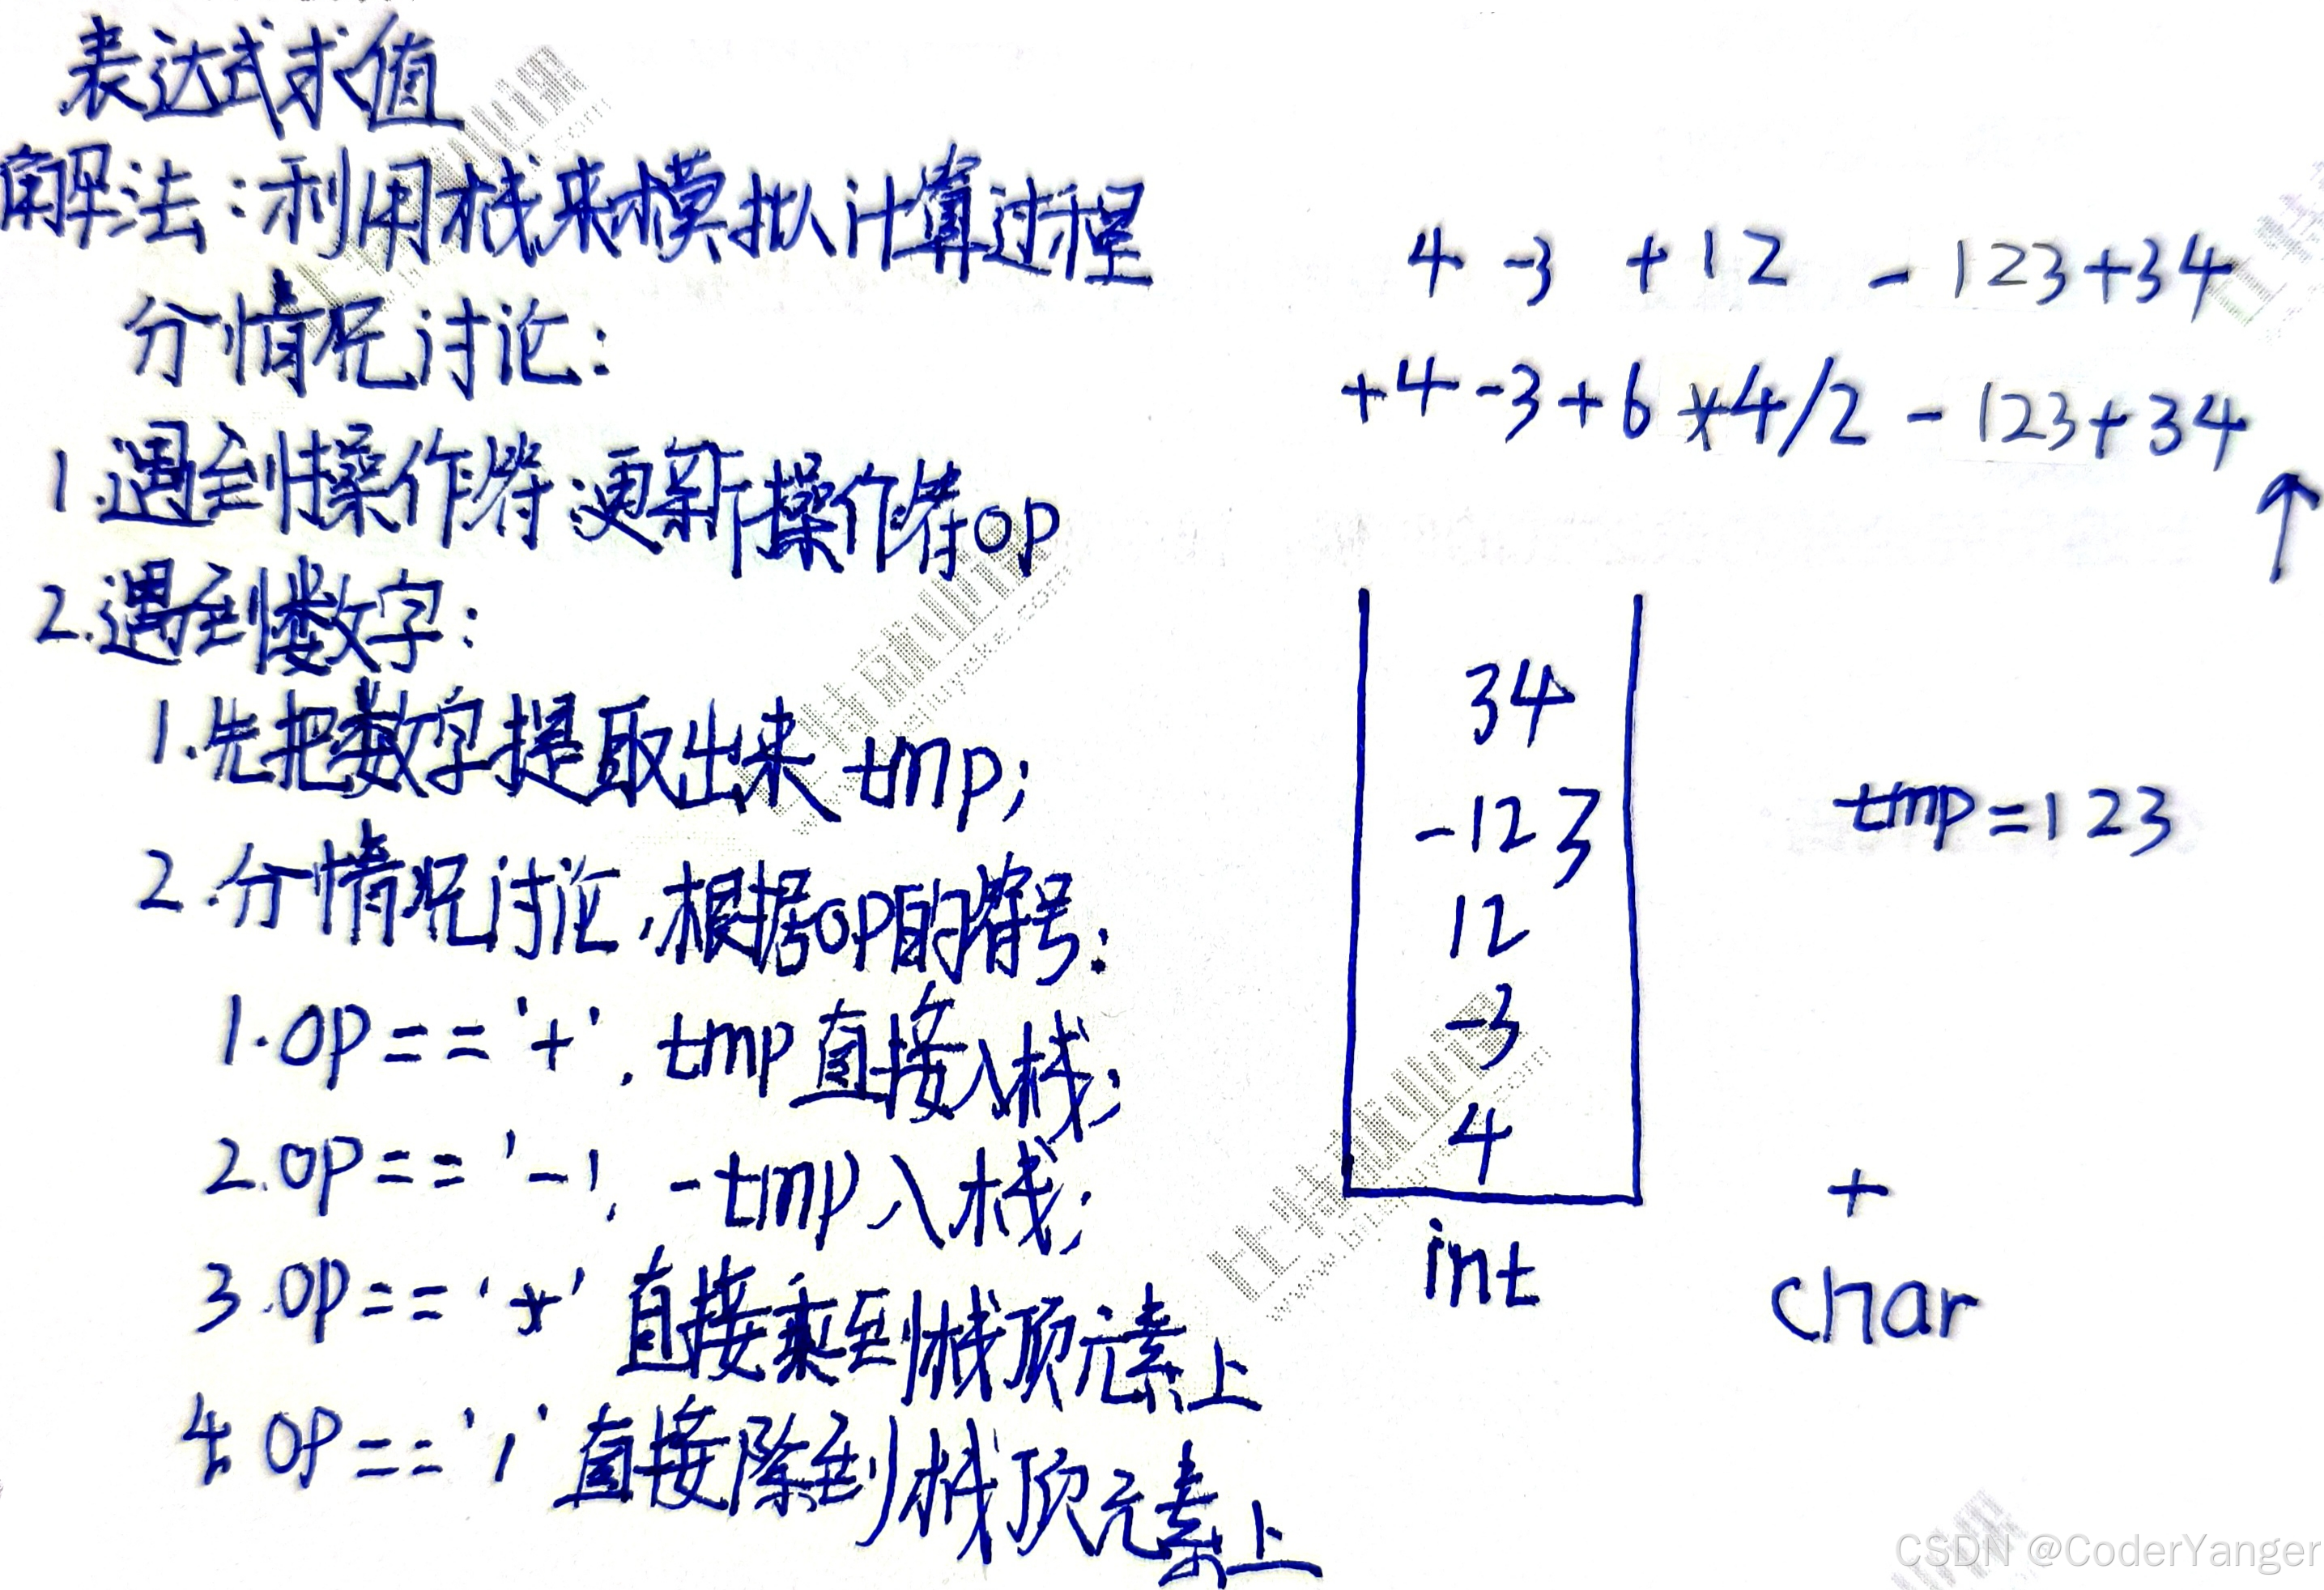 表达式求值
解法:利用栈来模拟计算过程
分情况讨论:
1.遇到操作符,更新操作符op
2.遇到数字:
1.先把数字提取出来 tmp;
2.分情况讨论,根据op的符号:
1.op=='+',tmp直接入栈;
2.op=='-',-tmp入栈;
3.op=='*'直接乘到栈顶元素上
4.op=='/'直接除到栈顶元素上
4 -3 +12 -123+34
+4-3+6*4/2-123+34
↑
34
-123
12
-3
4
int
tmp=123
+
char
比特就业课
CSDN @CoderYanger